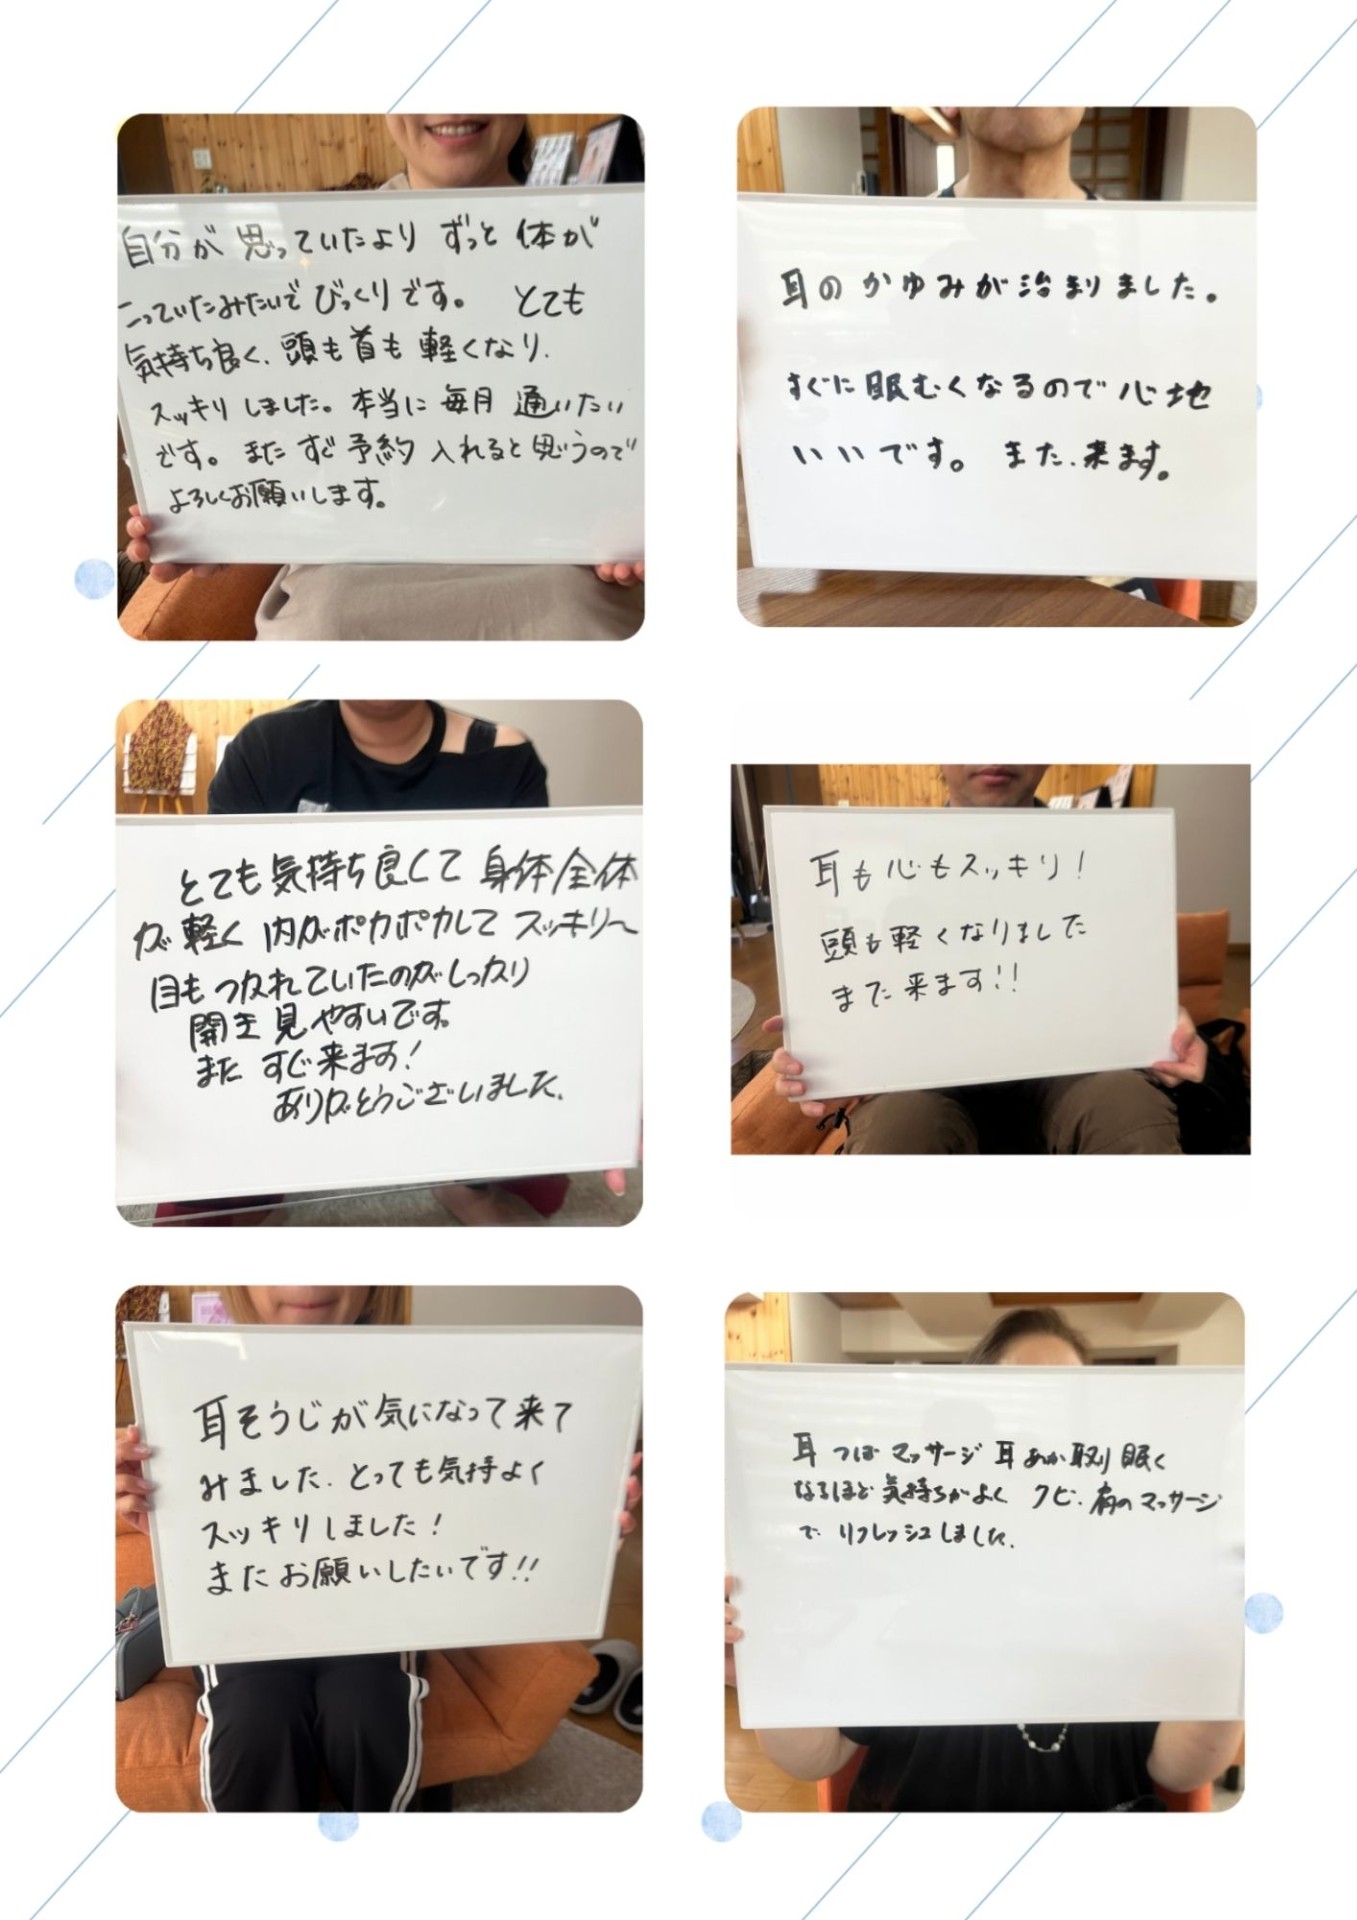 自分が思っていたよりずっと体が
こっていたみたいでびっくりです。とても
気持ち良く、頭も首も軽くなり、
スッキリしました。本当に毎月通いたい
です。またすぐ予約入れると思うので
よろしくお願いします。
耳のかゆみが治まりました。
すぐに眠むくなるので心地
いいです。また、来ます。
とても気持ち良くて身体全体
が軽く内がポカポカしてスッキリ〜
目もつかれていたのがしっかり
開き見やすいです。
またすぐ来ます!
ありがとうございました。
耳も心もスッキリ!
頭も軽くなりました
また来ます!!
耳そうじが気になって来て
みました、とっても気持よく
スッキリしました!
またお願いしたいです!!
耳つぼマッサージ耳あか取り眠く
なるほど気持ちがよくクビ、肩のマッサージ
でリフレッシュしました。